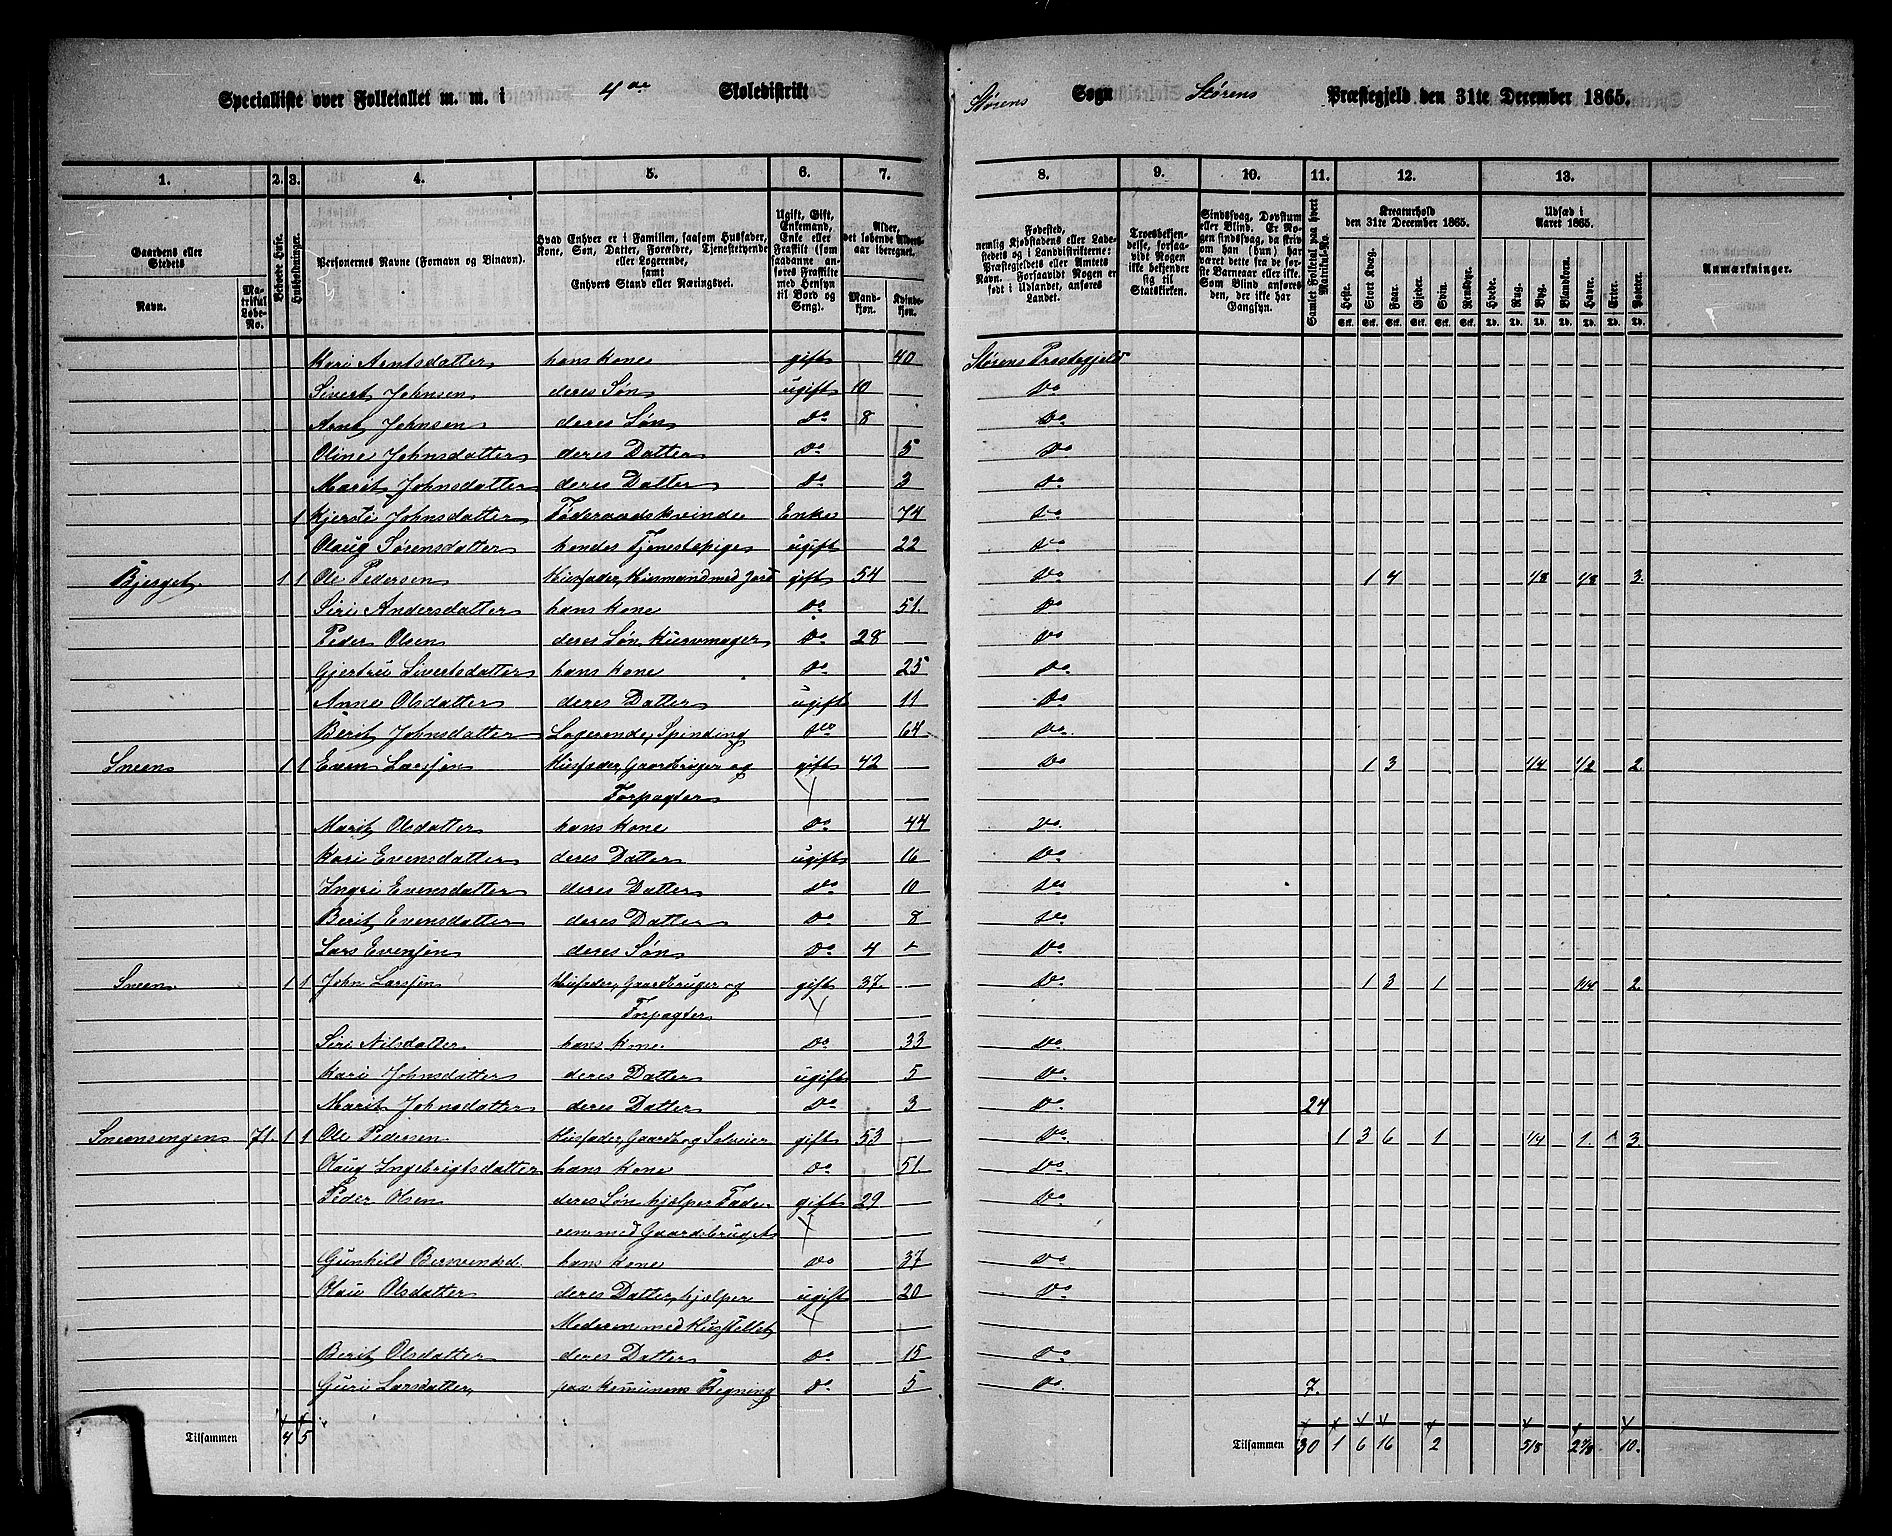 Specialliste over Folketallet m. m. i 4de Skoledistrikt Størens Sogn Størens Præstegjeld den 31te December 1865.
1. 2. 3. 4. 5. 6. 7. 8. 9. 10. 11. 12. 13.
Gaardens eller Stedets Navn. Matrikul Løbe-No. Beboede Huse. Husholdninger. Personernes Navne (Fornavn og Binavn). Hvad Enhver er i Familien, saasom Husfader, Kone, Søn, Datter, Forældre, Tjenestetyende eller Logerende, samt Enhvers Stand eller Næringsvei. Ugift, Gift, Enkemand, Enke eller Fraskilt (som saadanne anføres Fraskilte med Hensyn til Bord og Seng). Alder, det løbende Aldersaar iberegnet. Mandkjøn. Kvindekjøn. Fødested, nemlig Kjøbstadens eller Ladestedets og i Landdistrikterne: Præstegjeldets eller Amtets Navn. Forsaavidt Nogen er født i Udlandet, anføres Landet. Troesbekjendelse, forsaavidt Nogen ikke bekjender sig til Statskirken. Sindssvag, Døvstum eller Blind. Er Nogen sindssvag, da skrives om han (hun) har været dette fra de første Barneaar eller ikke. Som Blind anføres den, der ikke har Gangsyn. Samlet Folketal paa hvert Matrikul-No. Kreaturhold den 31te December 1865. Heste. Stort Kvæg. Faar. Gjeder. Svin. Rensdyr. Udsæd i Aaret 1865. Hvede. Rug. Byg. Blandkorn. Havre. Erter. Poteter. Anmærkninger.
Kari Arntsdatter hans Kone gift 40 Størens Prestegjeld
Sivert Johnsen deres Søn ugift 10 Do
Arnt Johnsen deres Søn Do 8 Do
Oline Johnsdatter deres Datter Do 5 Do
Marit Johnsdatter deres Datter Do 3 Do
1 Kjersti Johnsdatter Føderaadskvinde Enke 74 Do
Olaug Sørensdatter hendes Tjenestepige ugift 22 Do
Bjerget 1 1 Ole Pedersen Husfader, Husmand med Jord gift 54 Do 1 4 1/8 1/8 3.
Siri Andersdatter hans Kone Do 51. Do
Peder Olsen deres Søn, Kurvmager Do 28 Do
Gjertru Sivertsdatter hans Kone Do 25 Do
Anne Olsdatter deres Datter ugift 11 Do
Berit Johnsdatter Logerende, Spinding Do 64 Do.
Sneen 1 1 Even Larssen Husfader, Gaardbruger og gift 42 Do 1 3 1/4 1/2 2.
Forpagter
Marit Olsdatter hans Kone Do 44 Do.
Kari Evensdatter deres Datter ugift 16 Do
Ingri Evensdatter deres Datter Do 10 Do
Berit Evensdatter deres Datter Do 8 Do
Lars Evensen deres Søn Do 4 Do
Sneen 1 1 John Larssen Husfader, Gaardbruger og gift 37. Do 1 3 1 1/4 2.
Forpagter
Siri Nilsdatter hans Kone. Do 33 Do
Kari Johnsdatter deres Datter ugift 5 Do.
Marit Johnsdatter deres Datter Do 3 Do 24
Sneensengen 71. 1 1 Ole Pedersen Husfader, Gaardb og Selveier gift 53 Do 1 3 6 1 1/4 1. 1 3.
Olaug Ingebrigtsdatter hans Kone Do 51. Do
Peder Olsen deres Søn hjelper Fade- gift 29 Do
ren med Gaardsbruget
Gunhild Bersvendsd. hans Kone Do 37 Do
Olau Olsdatter deres Datter, hjelper ugift 20 Do
Moderen med Husstellet
Berit Olsdatter deres Datter Do 15 Do
Guri Larsdatter paa Komunens Regning Do 5 Do. 7.
Tilsammen 4 5 Tilsammen 30 1 6 16 2 5/8 10.